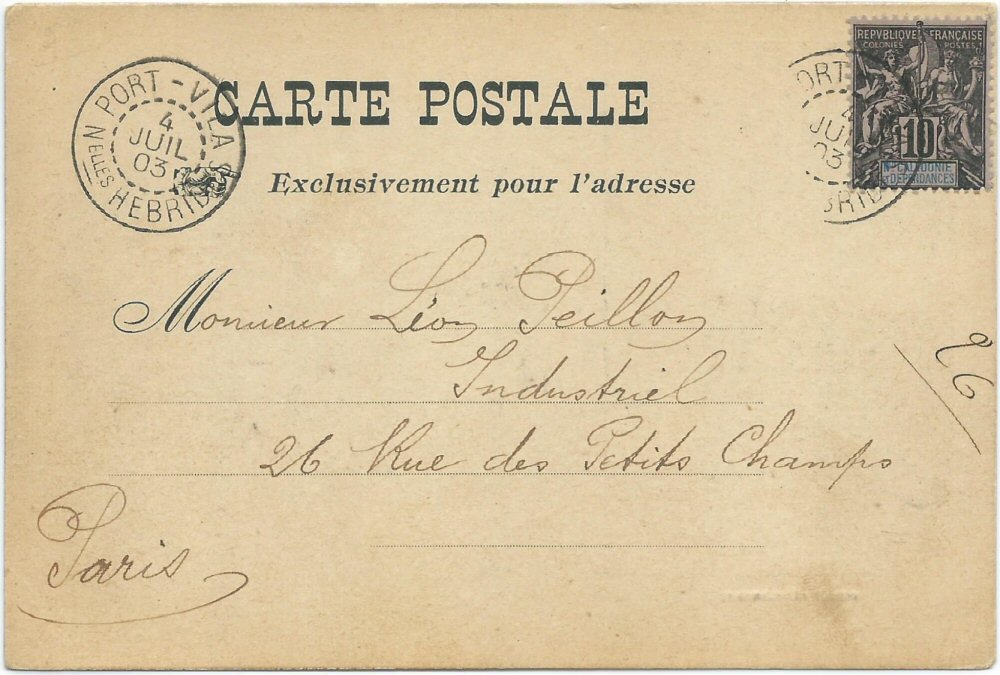 CARTE POSTALE
Exclusivement pour l'adresse
PORT-VILA
4
JUIL
03
Nelles HEBRIDES
REPVBLIQVE FRANÇAISE
COLONIES POSTES
10
Nle CALEDONIE
ET DEPENDANCES
ORT
4
JUI
03
BRID
Monsieur Léon Peillon
Industriel
26 Rue des Petits Champs
Paris
26